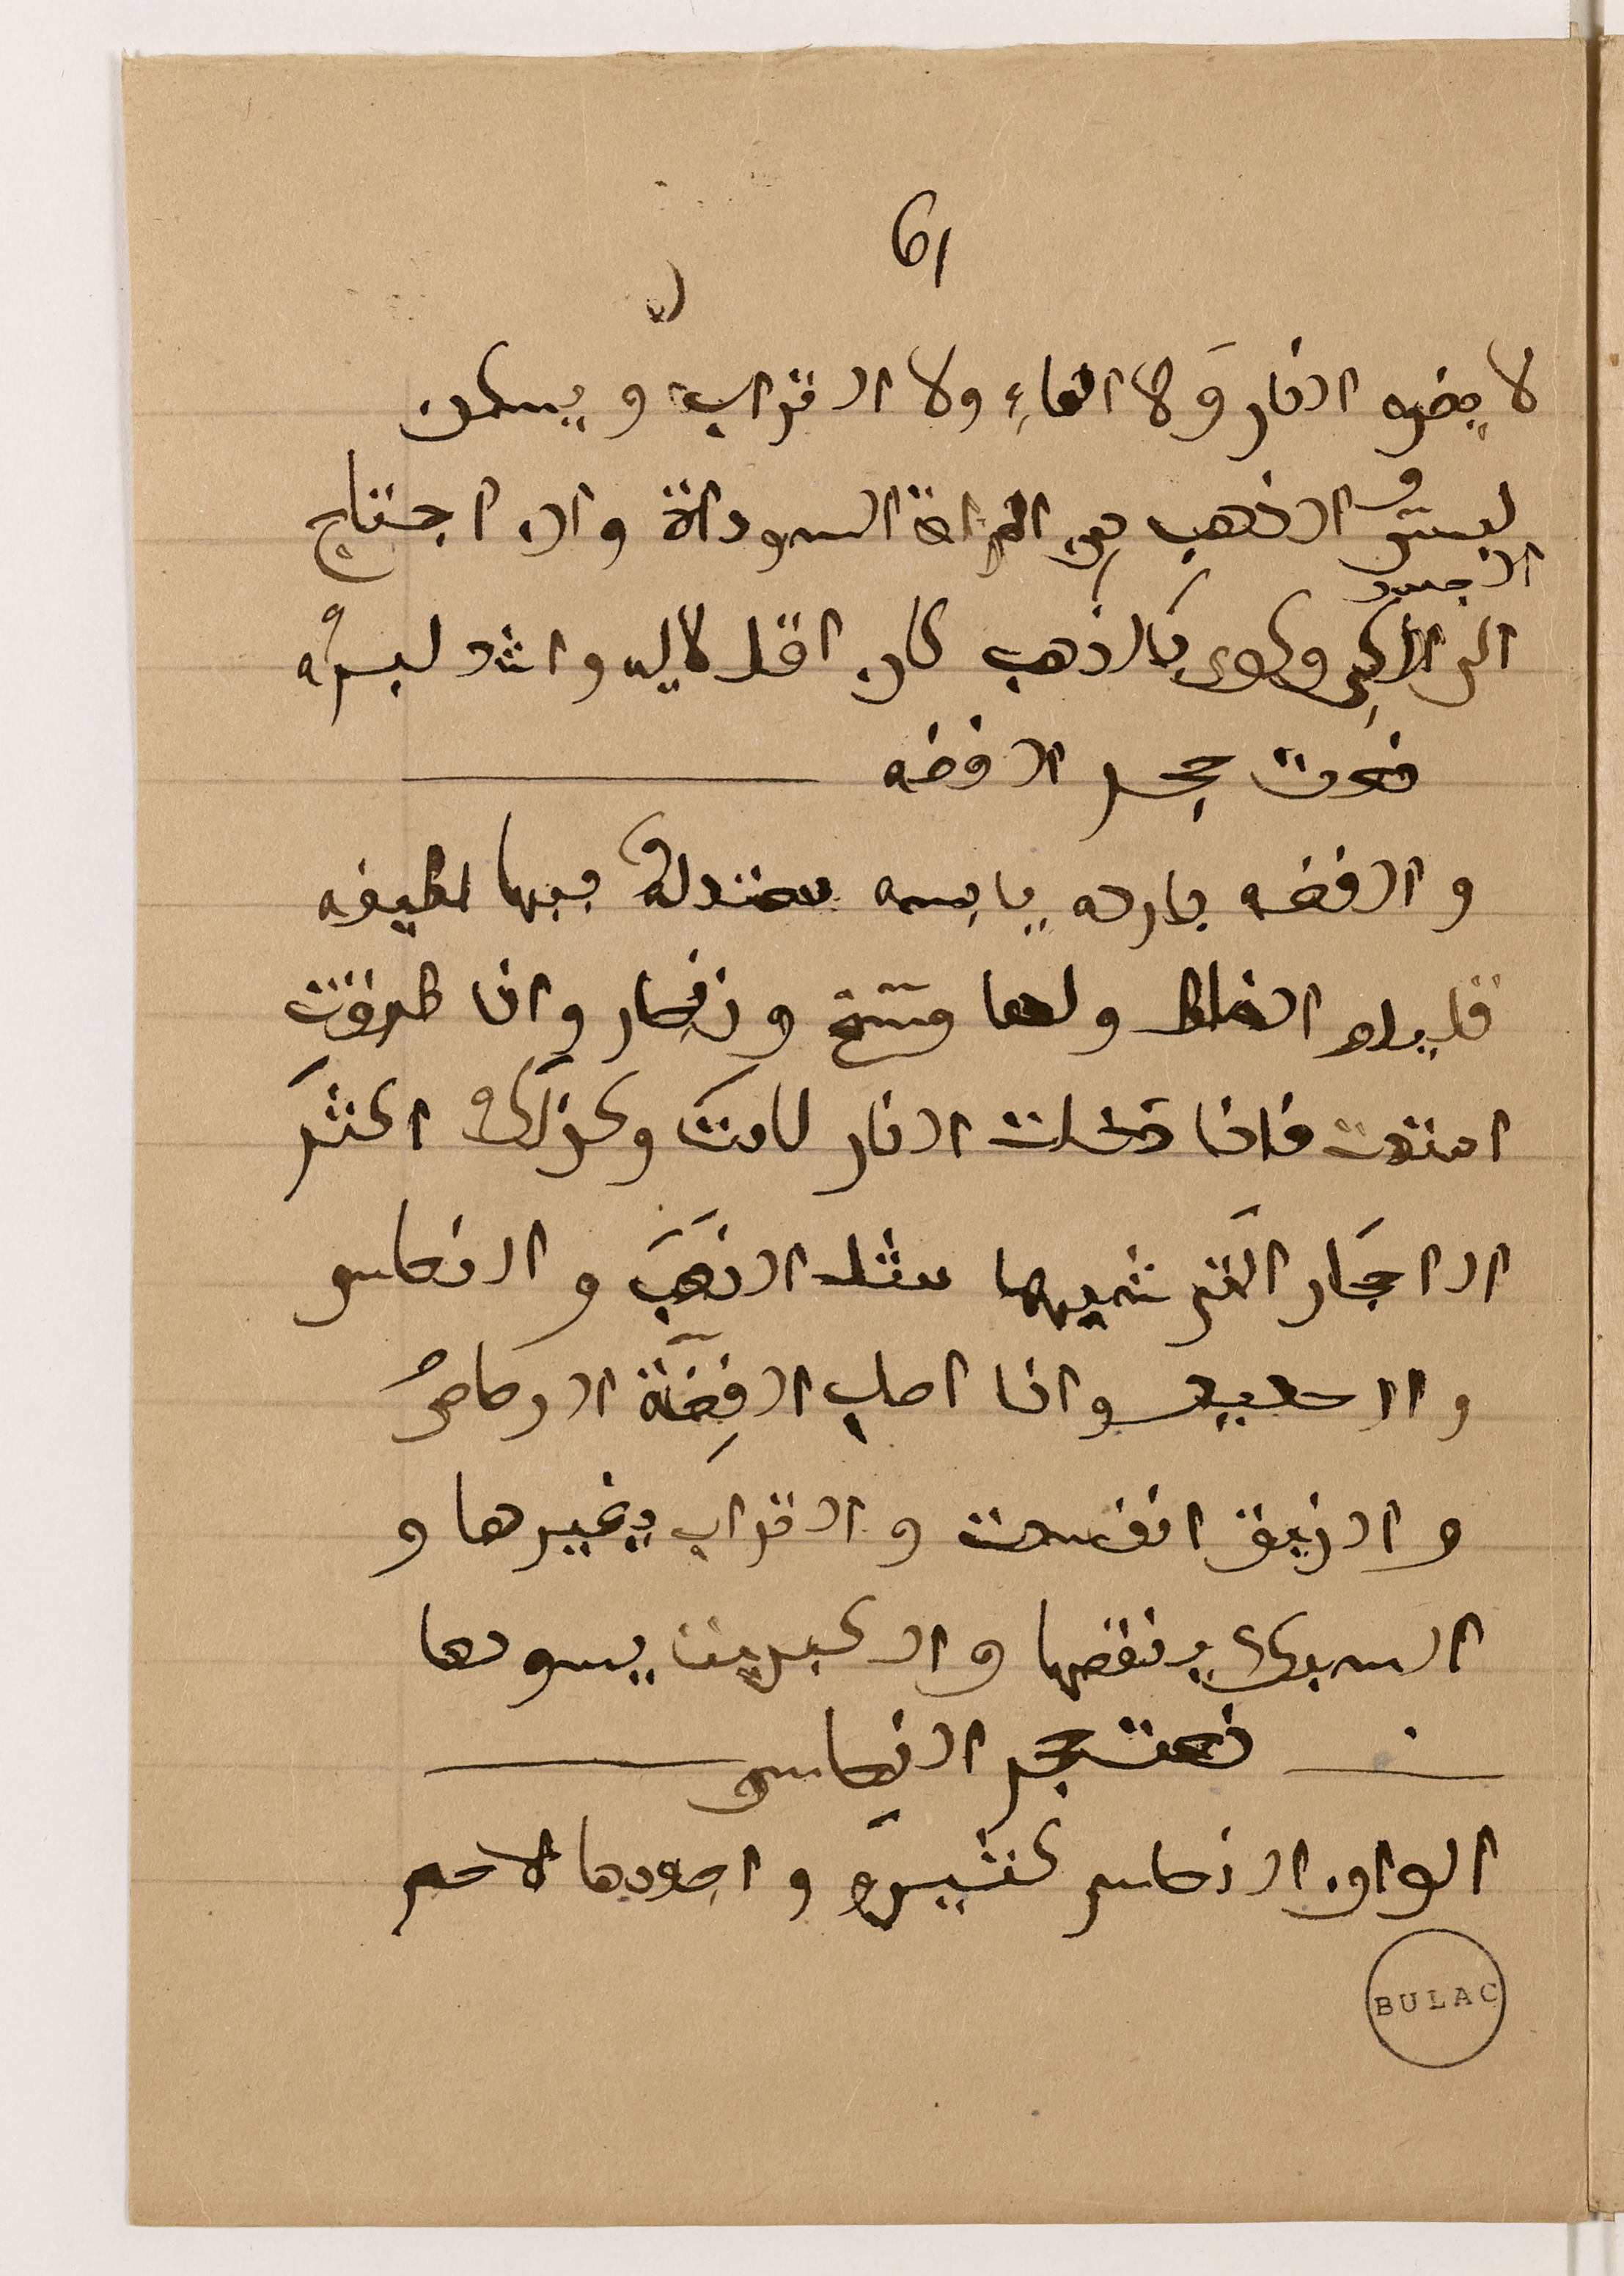 61
لا يضره النار ولا الماء ولا التراب ويسكن
لبس الذهب من المراة السوداة وان احتاج
الجسد
الى الكي وكوى بالذهب كان اقل لاليه واشد لبره
نعت حجر الفضه
والفضه بارده يابسه معتدلة فيها لطيفه
قليله الغلظ ولها وسخ وزنجار واذا طرقت
امتدت فاذا دخلت النار لانت وكذلك اكثر
الاحجار التى شبهها مثل الذهب والنحاس
والحديد واذا اصاب الفضة الرصاص
والزيبق انفسدت والتراب يغيرها و
السبك ينقصها والكبريت يسودها
نعت حجر النحاس
الوان النحاس كثيره واجودها لاحمر
BULAC